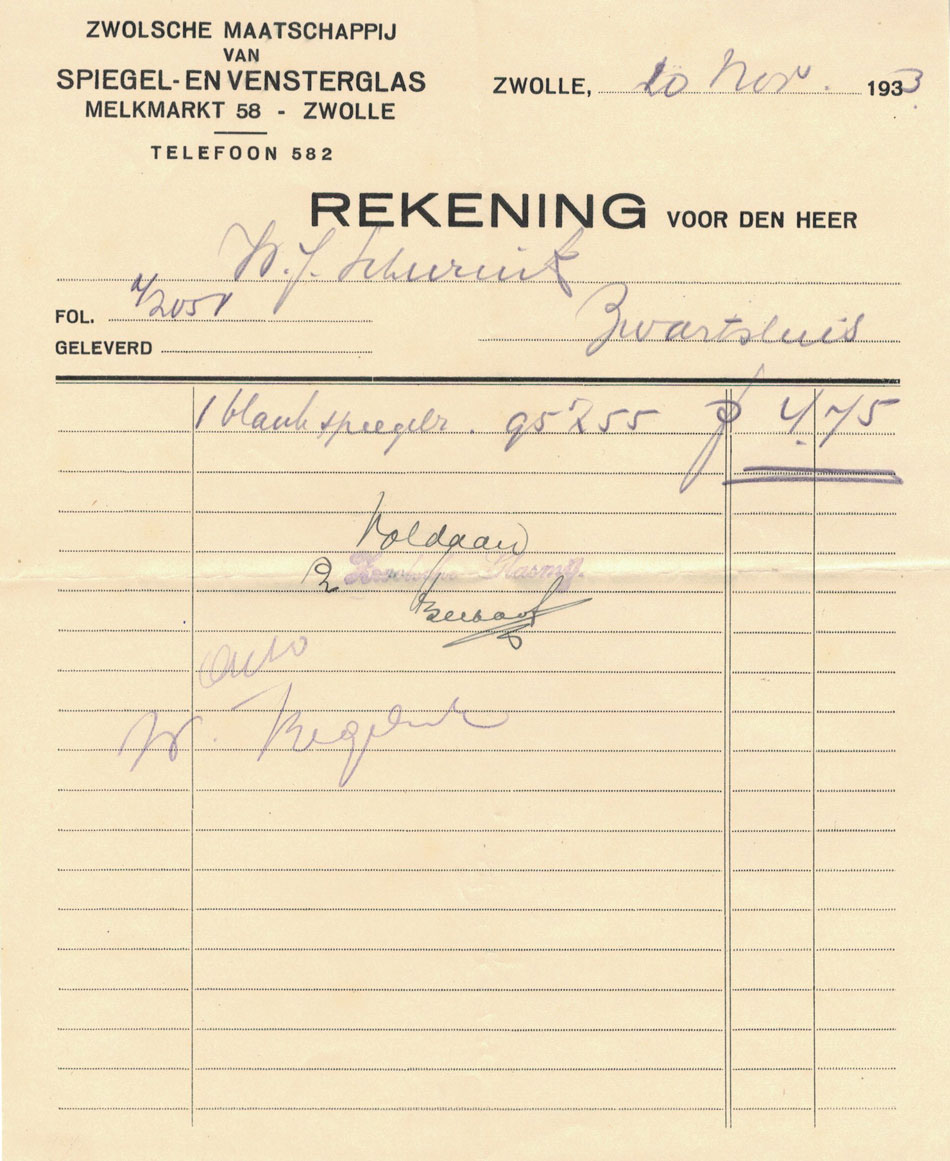 ZWOLSCHE MAATSCHAPPIJ
VAN
SPIEGEL- EN VENSTERGLAS
MELKMARKT 58 - ZWOLLE
TELEFOON 582
ZWOLLE, 20 Nov. 1933
REKENING VOOR DEN HEER
W. J. Scheurink
FOL. 4/2051
Zwartsluis
GELEVERD
1 blank spiegelr. 95 x 55 ƒ 4.75
Voldaan
Zwolsche Glasmij.
auto
W.